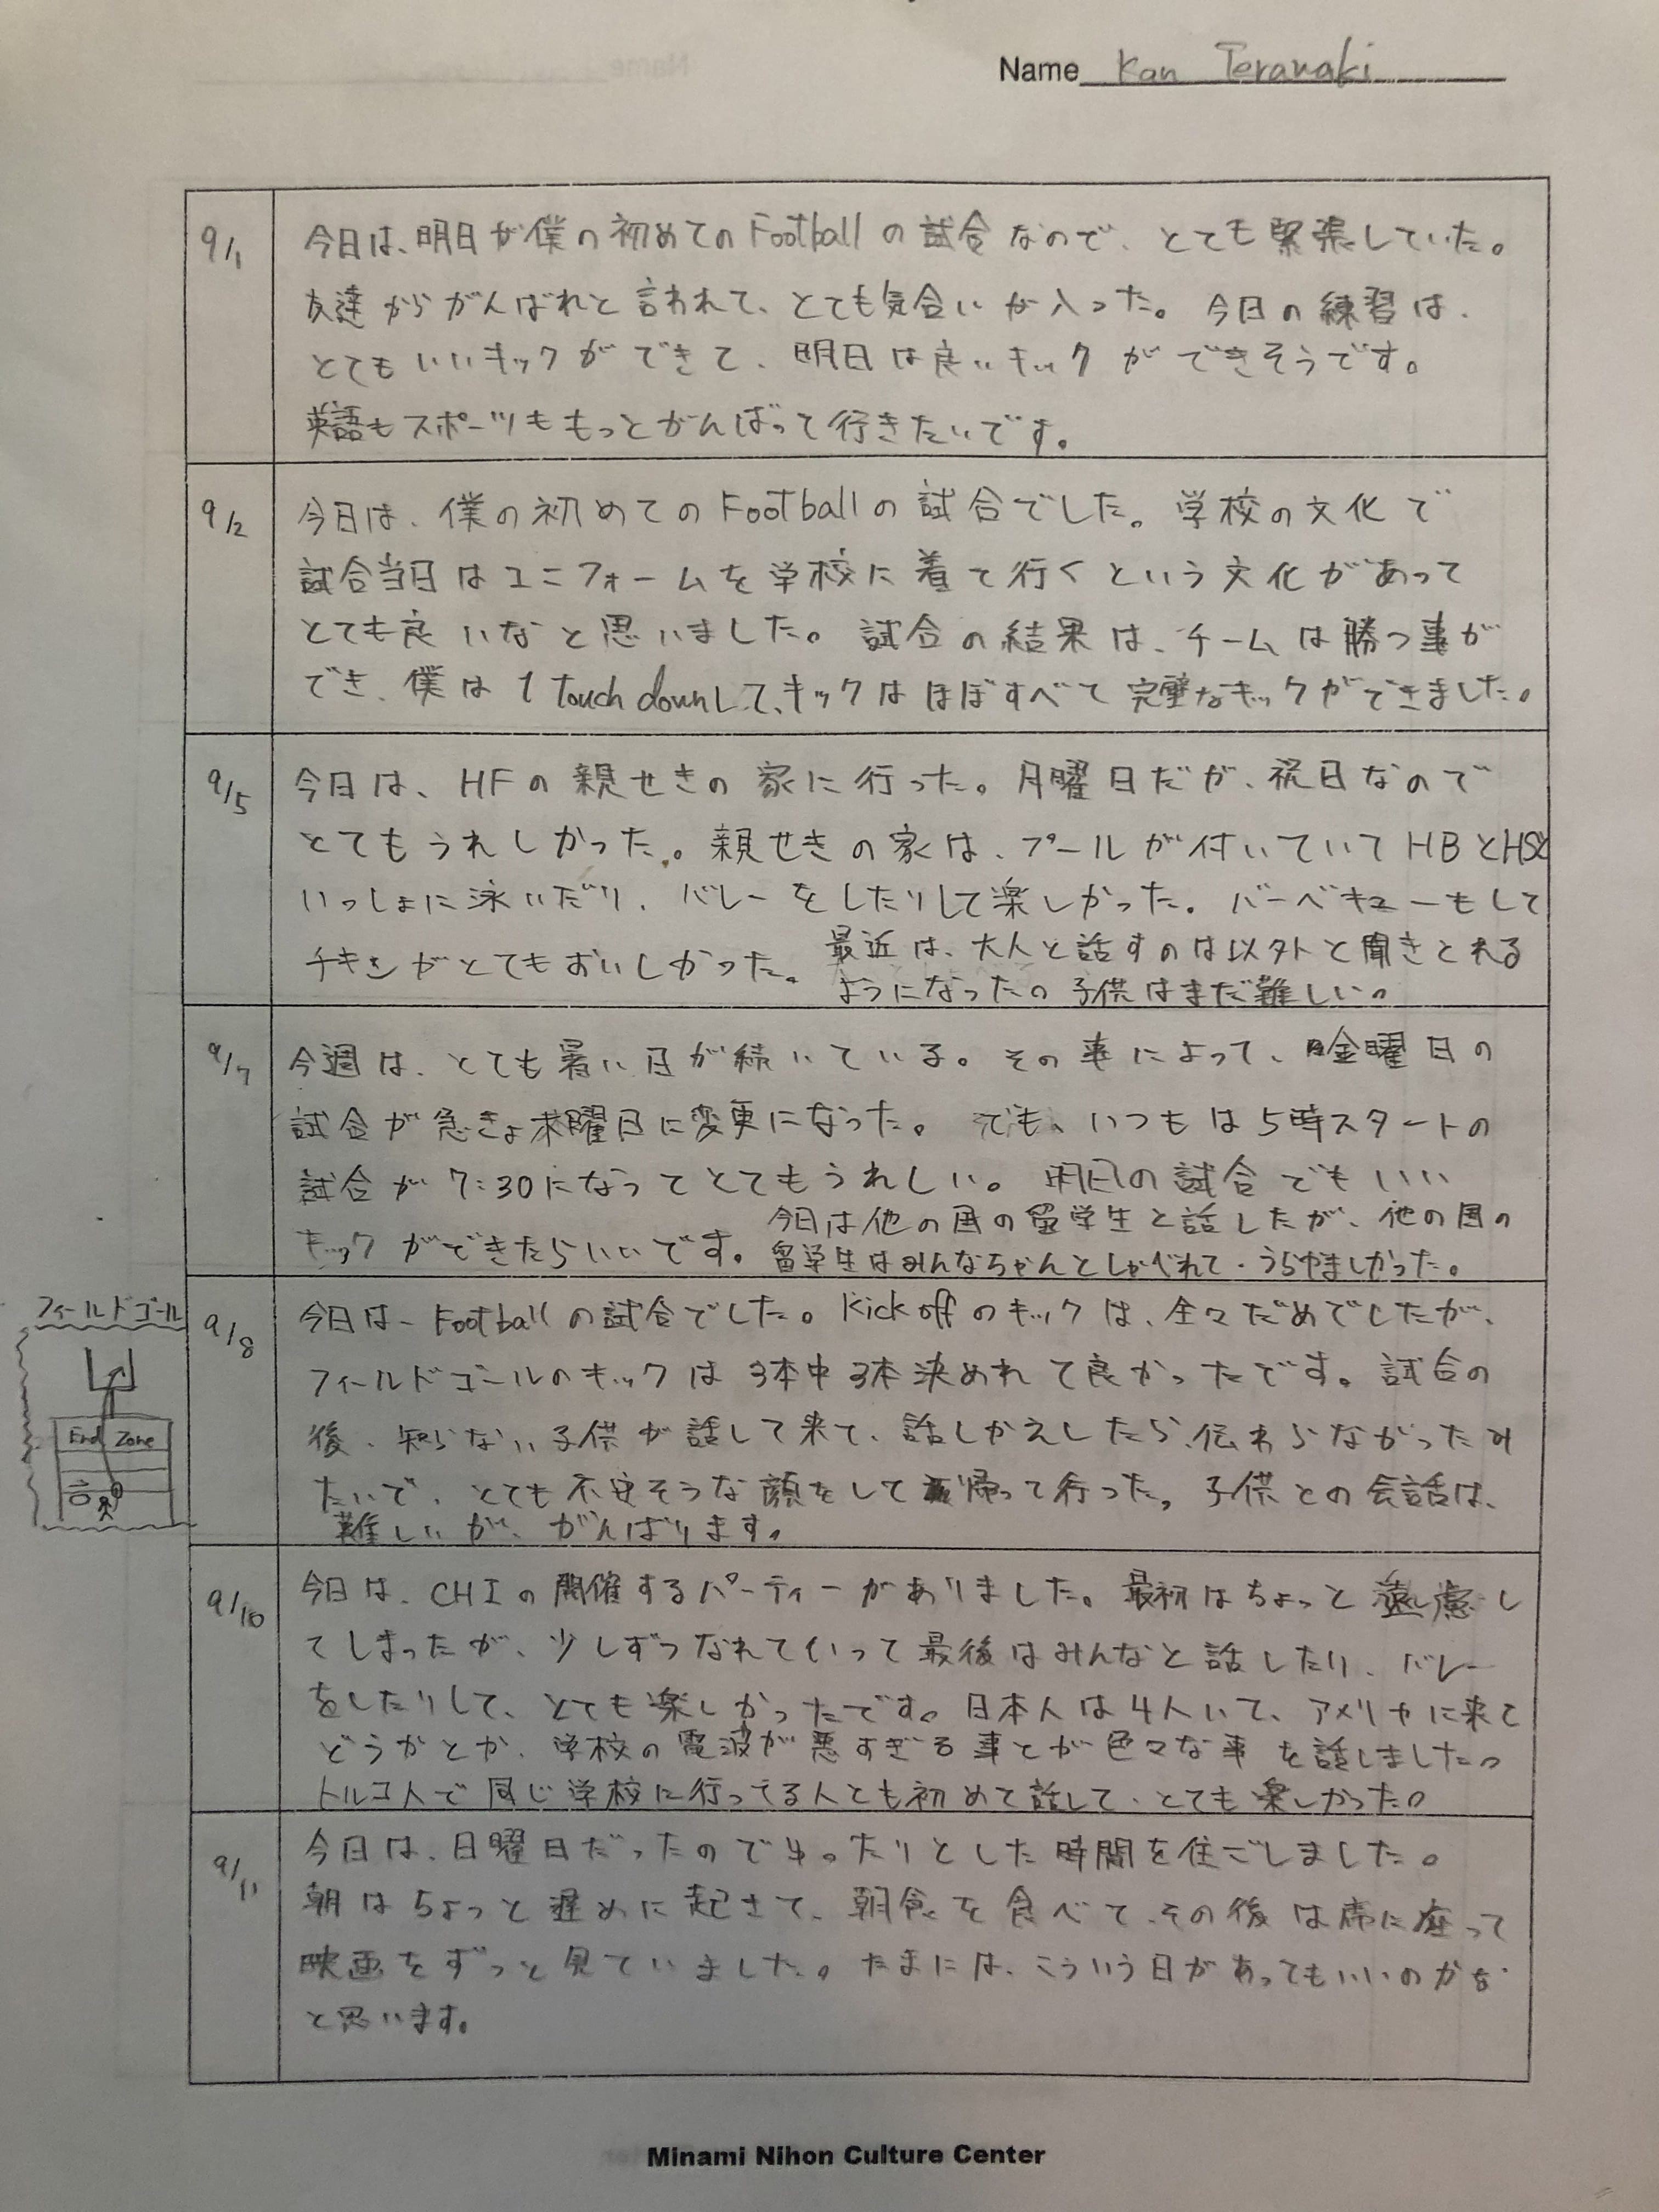 Name Kan Teranaki
9/1
今日は、明日が僕の初めてのFootballの試合なので、とても緊張していた。
友達からがんばれと言われて、とても気合いが入った。今日の練習は、
とてもいいキックができて、明日は良いキックができそうです。
英語もスポーツももっとがんばって行きたいです。
9/2
今日は、僕の初めてのFootballの試合でした。学校の文化で
試合当日はユニフォームを学校に着て行くという文化があって
とても良いなと思いました。試合の結果は、チームは勝つ事が
でき、僕は1 Touch downして、キックはほぼすべて完璧なキックができました。
9/5
今日は、HFの親せきの家に行った。月曜日だが、祝日なので
とてもうれしかった。親せきの家は、プールが付いていてHBとHSと
いっしょに泳いだり、バレーをしたりして楽しかった。バーベキューもして
チキンがとてもおいしかった。最近は、大人と話すのは以外と聞きとれる
ようになったの 子供はまだ難しい。
9/7
今週は、とても暑い日が続いている。その事によって、金曜日の
試合が急きょ木曜日に変更になった。でも、いつもは5時スタートの
試合が7:30になってとてもうれしい。明日の試合でもいい
キックができたらいいです。今日は他の国の留学生と話したが、他の国の
留学生はみんなちゃんとしゃべれて、うらやましかった。
フィールドゴール
End Zone
9/8
今日は、Footballの試合でした。Kick offのキックは、全々だめでしたが、
フィールドゴールのキックは3本中3本決めれて良かったです。試合の
後、知らない子供が話して来て、話しかえしたら、伝わらなかったみ
たいで、とても不安そうな顔をして帰って行った。子供との会話は、
難しいが、がんばります。
9/10
今日は、CHIの開催するパーティーがありました。最初はちょっと遠慮し
てしまったが、少しずつなれていって最後はみんなと話したり、バレー
をしたりして、とても楽しかったです。日本人は4人いて、アメリカに来て
どうかとか、学校の電波が悪すぎる事とか色々な事を話しました。
トルコ人で同じ学校に行ってる人とも初めて話して、とても楽しかった。
9/11
今日は、日曜日だったのでゆったりとした時間を住ごしました。
朝はちょっと遅めに起きて、朝食を食べて、その後は席に座って
映画をずっと見ていました。たまには、こういう日があってもいいのかな
と思います。
Minami Nihon Culture Center